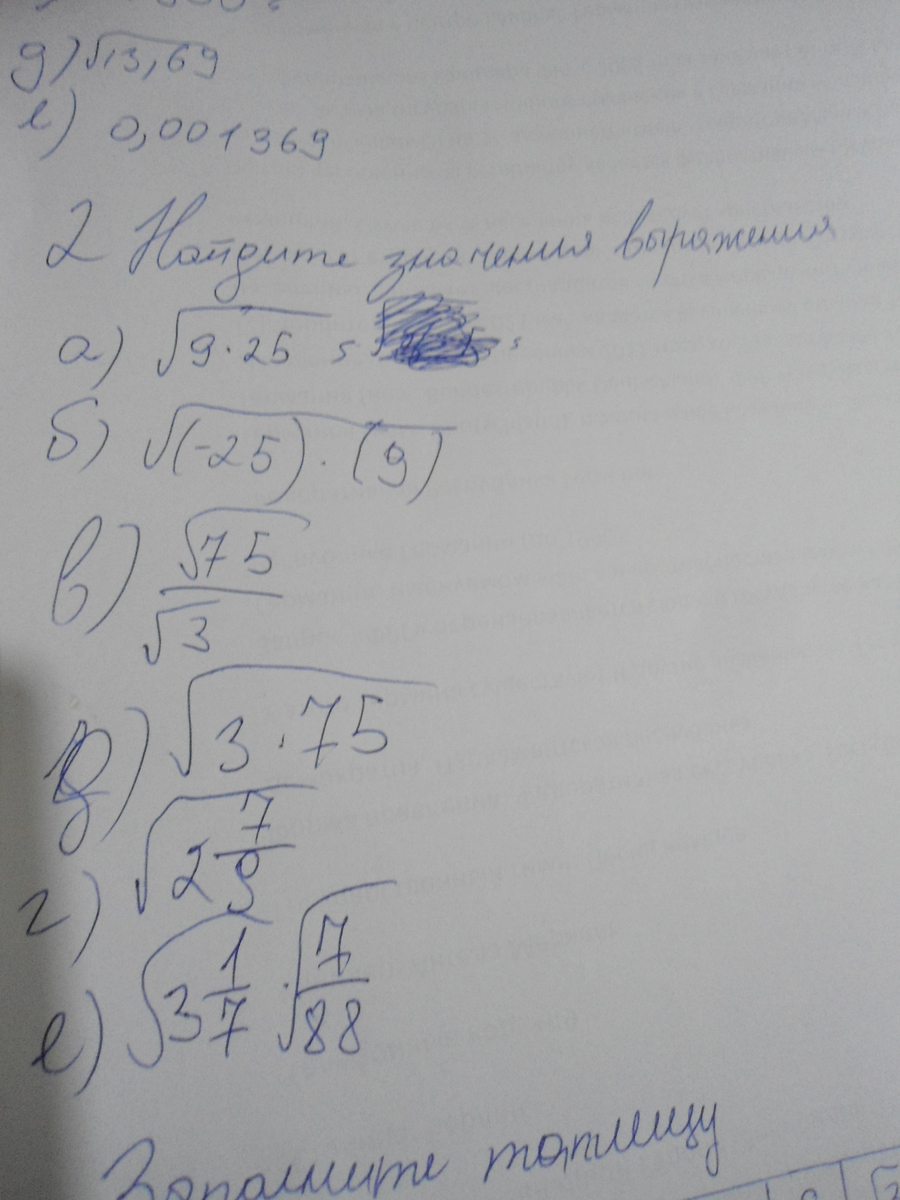 д) √13,69
е) 0,001369
2 Найдите значения выражения
а) √9·25 =
б) √(-25)·(9)
в) √75/√3
д) √3·75
г) √2 7/9
е) √3 1/7 · √7/88
Заполните таблицу